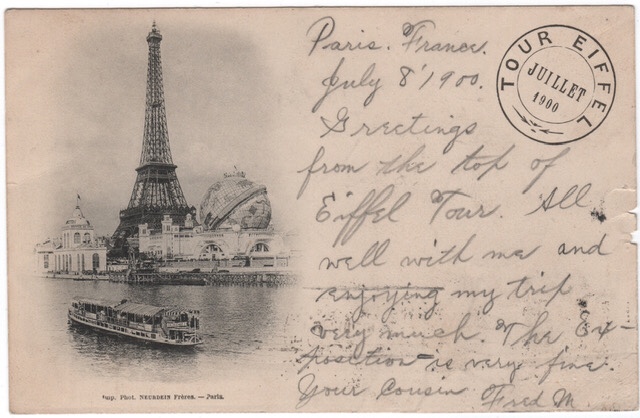 Paris. France.
July 8' 1900.
Greetings
from the top of
Eiffel Tour. All
well with me and
enjoying my trip
very much. The Ex-
position is very fine.
Your Cousin Fred M.
TOUR EIFFEL
JUILLET
1900
Imp. Phot. NEURDEIN Frères. — Paris.